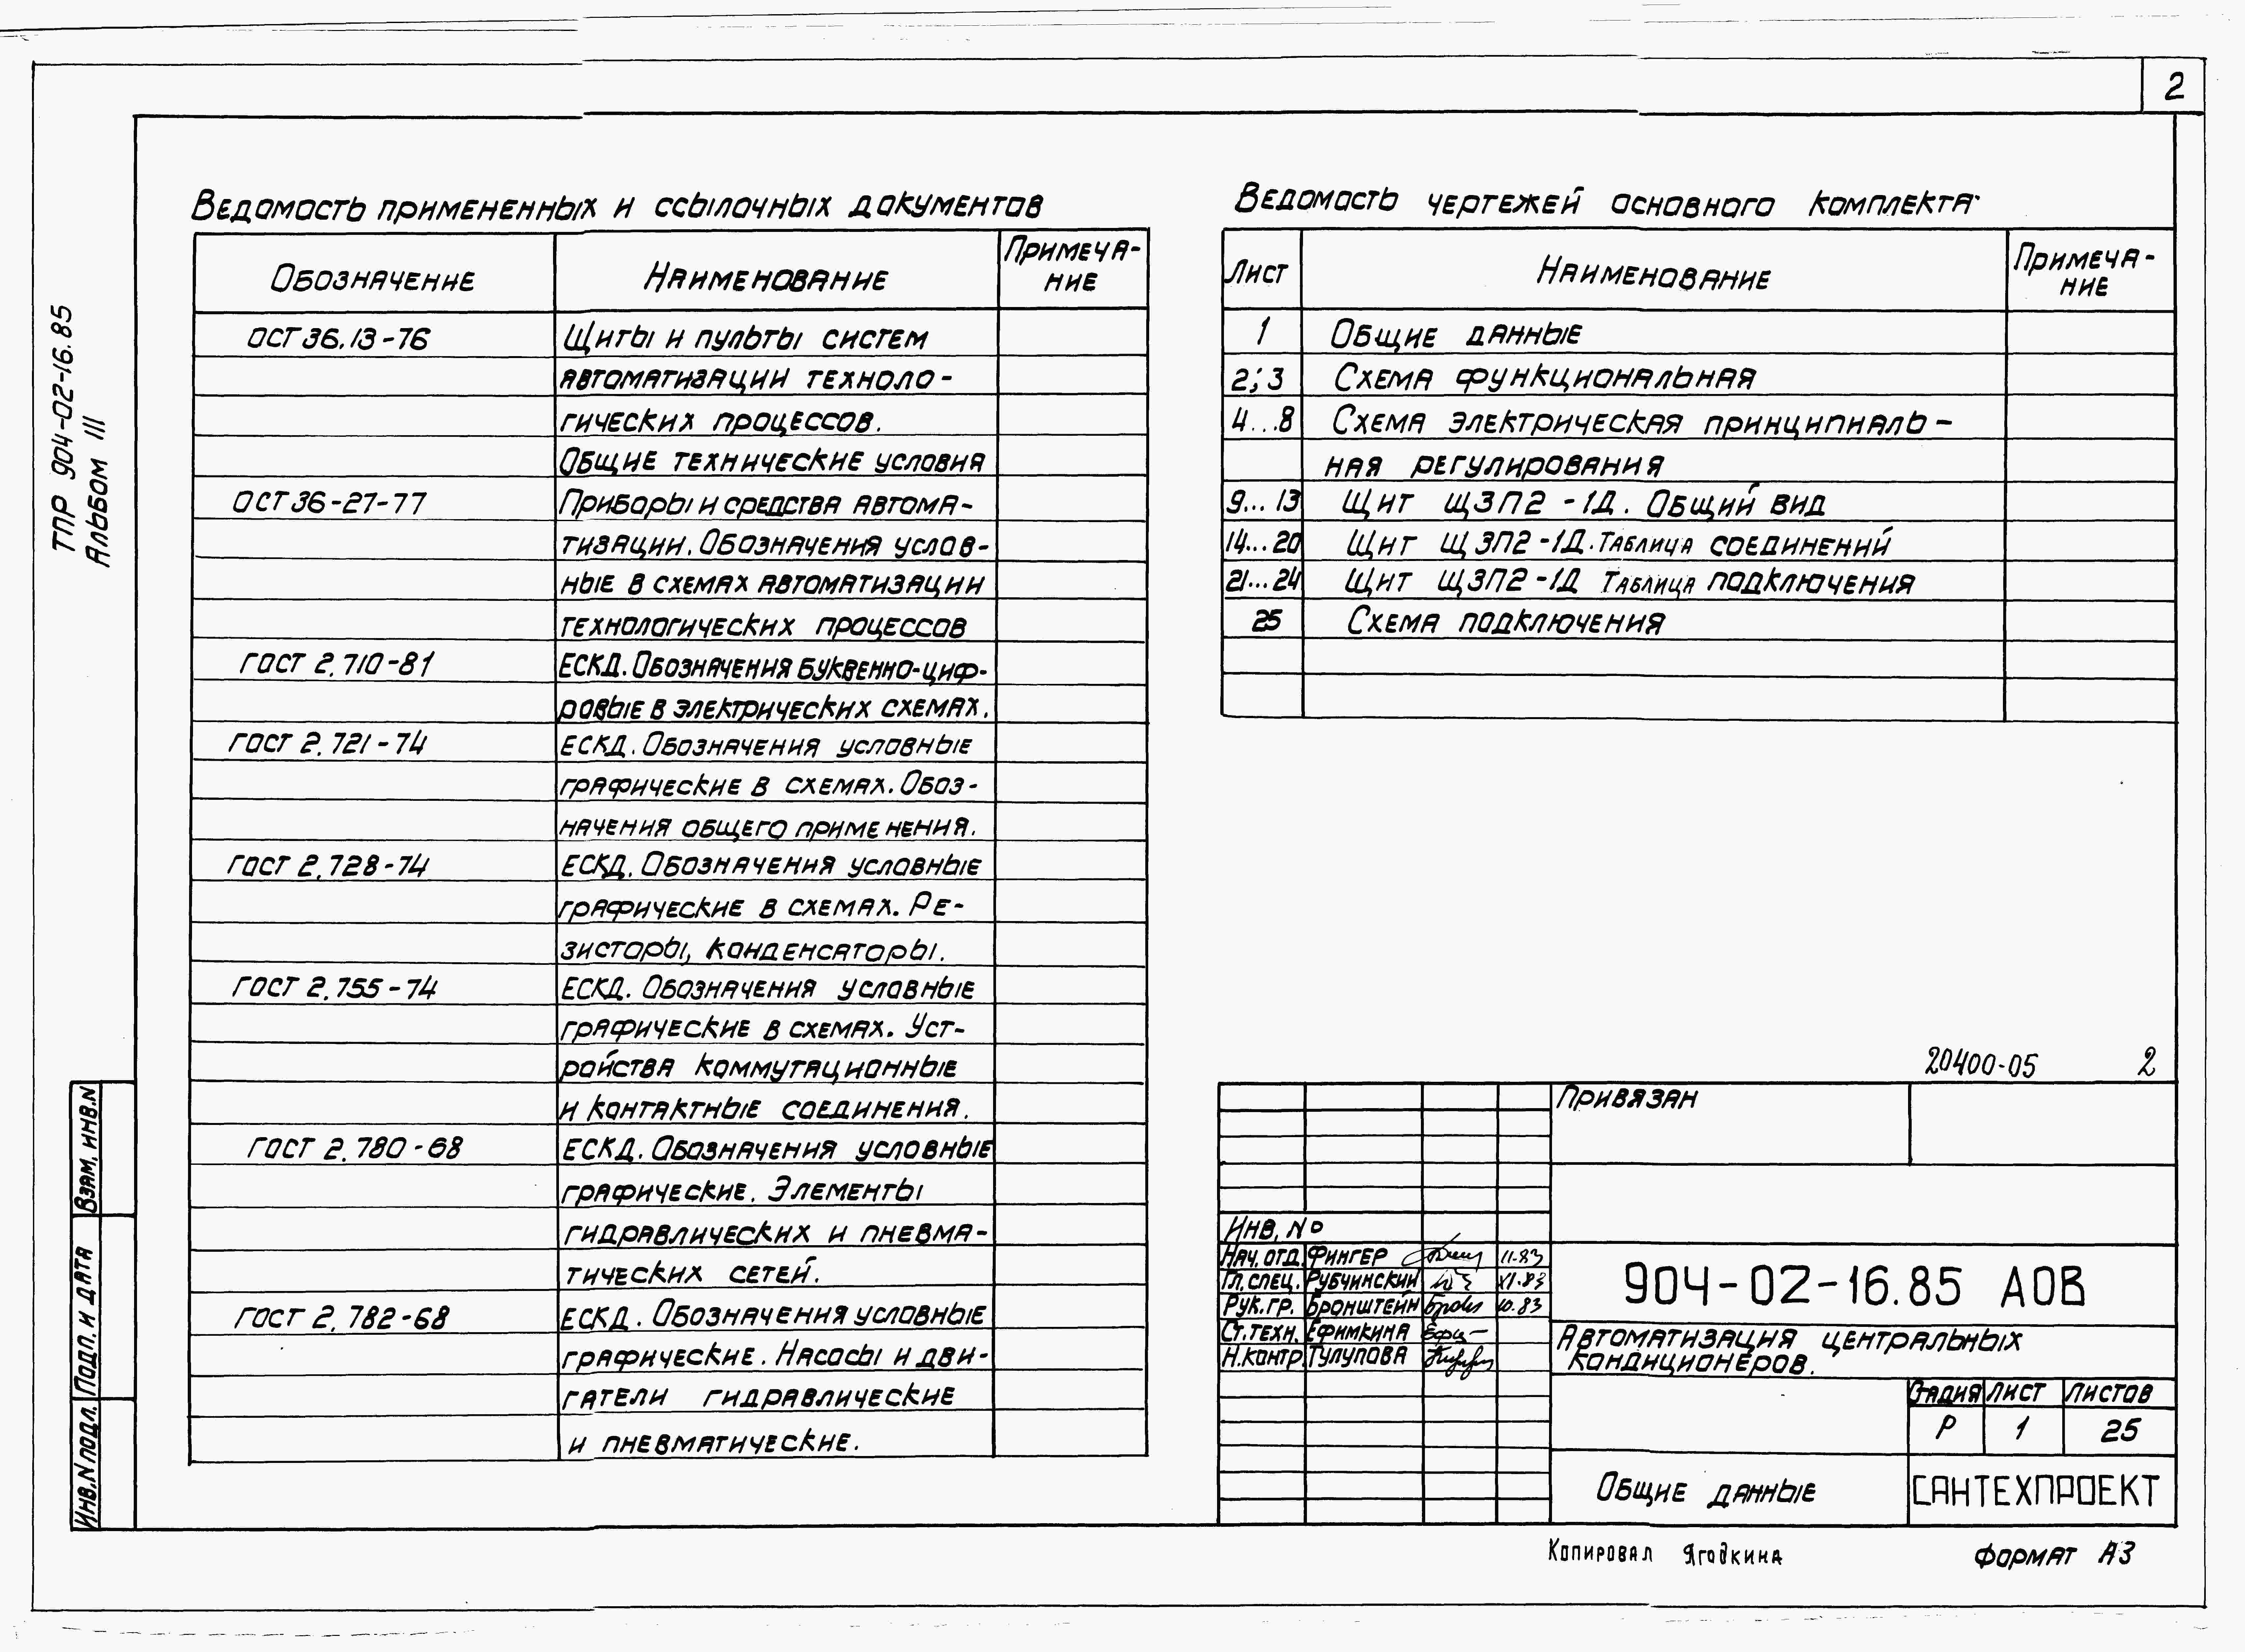 2
ТПР 904-02-16.85
Альбом III
Ведомость примененных и ссылочных документов
Обозначение Наименование Примеча-
ние
ОСТ 36.13-76 Щиты и пульты систем
автоматизации техноло-
гических процессов.
Общие технические условия
ОСТ 36-27-77 Приборы и средства автома-
тизации. Обозначения услов-
ные в схемах автоматизации
технологических процессов
ГОСТ 2.710-81 ЕСКД. Обозначения буквенно-циф-
ровые в электрических схемах.
ГОСТ 2.721-74 ЕСКД. Обозначения условные
графические в схемах. Обоз-
начения общего применения.
ГОСТ 2.728-74 ЕСКД. Обозначения условные
графические в схемах. Ре-
зисторы, конденсаторы.
ГОСТ 2.755-74 ЕСКД. Обозначения условные
графические в схемах. Уст-
ройства коммутационные
и контактные соединения.
ГОСТ 2.780-68 ЕСКД. Обозначения условные
графические. Элементы
гидравлических и пневма-
тических сетей.
ГОСТ 2.782-68 ЕСКД. Обозначения условные
графические. Насосы и дви-
гатели гидравлические
и пневматические.
Ведомость чертежей основного комплекта
Лист Наименование Примеча-
ние
1 Общие данные
2; 3 Схема функциональная
4...8 Схема электрическая принципиаль-
ная регулирования
9...13 Щит ЩЗП2-1Д. Общий вид
14...20 Щит ЩЗП2-1Д. Таблица соединений
21...24 Щит ЩЗП2-1Д Таблица подключения
25 Схема подключения
20400-05 2
Привязан
Инв. №
Нач. отд. Фингер 11.83
Гл. спец. Рубчинский XI.83
Рук. гр. Бронштейн 10.83
Ст. техн. Ефимкина
Н. контр. Тулупова
904-02-16.85 АОВ
Автоматизация центральных
кондиционеров.
Стадия Лист Листов
Р 1 25
Общие данные
САНТЕХПРОЕКТ
Взам. инв. N
Подп. и дата
Инв. N подл.
Копировал Ягодкина
Формат А3